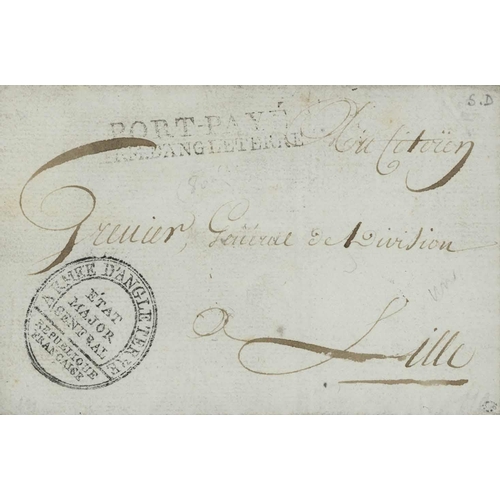 S.D
PORT-PAYÉ
ARM.D'ANGLETERRE
Au Citoÿen
Grenier, Général de Division
à Lille
ARMÉE D'ANGLETERRE
ÉTAT
MAJOR
GENERAL
REPUBLIQUE
FRANCAISE